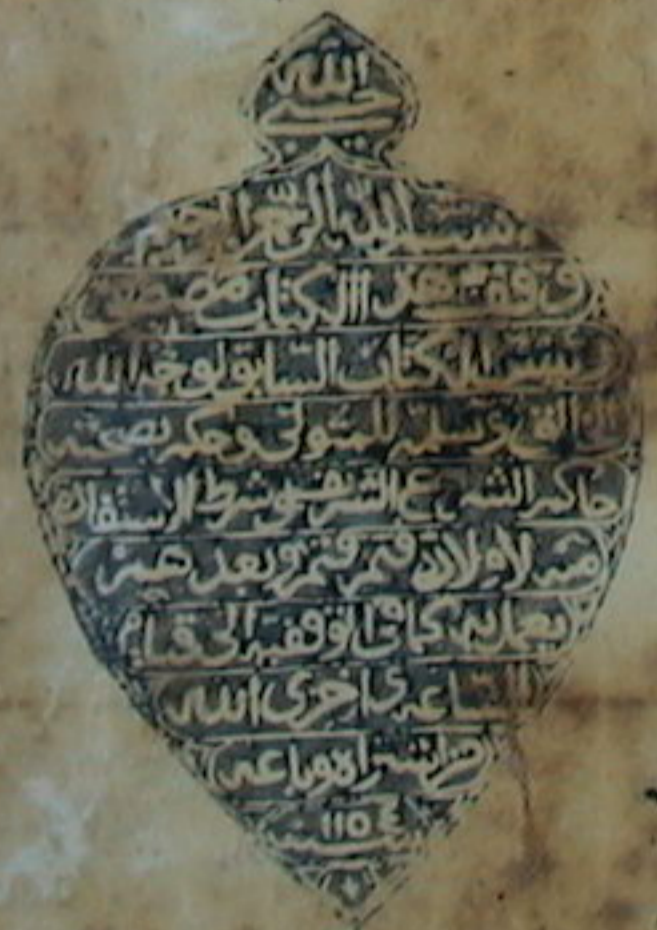 الله
حسبي
بسم الله الرحمن الرحيم
وقف هذا الكتاب مصطفى
الكتاب السابق لوجه الله
وسلمه للمتولي وحكم بصحته
حاكم الشرع الشريف شرط الاستفادة
منه لاولاده ثم وثم وبعدهم
يعمل به كما في الوقفية الى قيام
الساعة اخزى الله
من اشتراه وباعه
سنة ١١٥٤